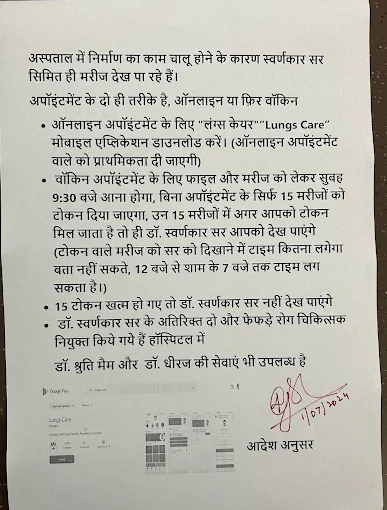 अस्पताल में निर्माण का काम चालू होने के कारण स्वर्णकार सर
सिमित ही मरीज देख पा रहे हैं।
अपॉइंटमेंट के दो ही तरीके है, ऑनलाइन या फ़िर वॉकिन
• ऑनलाइन अपॉइंटमेंट के लिए "लंग्स केयर""Lungs Care"
मोबाइल एप्लिकेशन डाउनलोड करें। (ऑनलाइन अपॉइंटमेंट
वाले को प्राथमिकता दी जाएगी)
• वॉकिन अपॉइंटमेंट के लिए फाइल और मरीज को लेकर सुबह
9:30 बजे आना होगा, बिना अपॉइंटमेंट के सिर्फ 15 मरीजों को
टोकन दिया जाएगा, उन 15 मरीजों में अगर आपको टोकन
मिल जाता है तो ही डॉ. स्वर्णकार सर आपको देख पाएंगे
(टोकन वाले मरीज को सर को दिखाने में टाइम कितना लगेगा
बता नहीं सकते, 12 बजे से शाम के 7 बजे तक टाइम लग
सकता है।)
• 15 टोकन खत्म हो गए तो डॉ. स्वर्णकार सर नहीं देख पाएंगे
• डॉ. स्वर्णकार सर के अतिरिक्त दो और फेफड़े रोग चिकित्सक
नियुक्त किये गये हैं हॉस्पिटल में
डॉ. श्रुति मैम और डॉ. धीरज की सेवाएं भी उपलब्ध है
Google Play
Lungs Care
1/07/2024
आदेश अनुसर